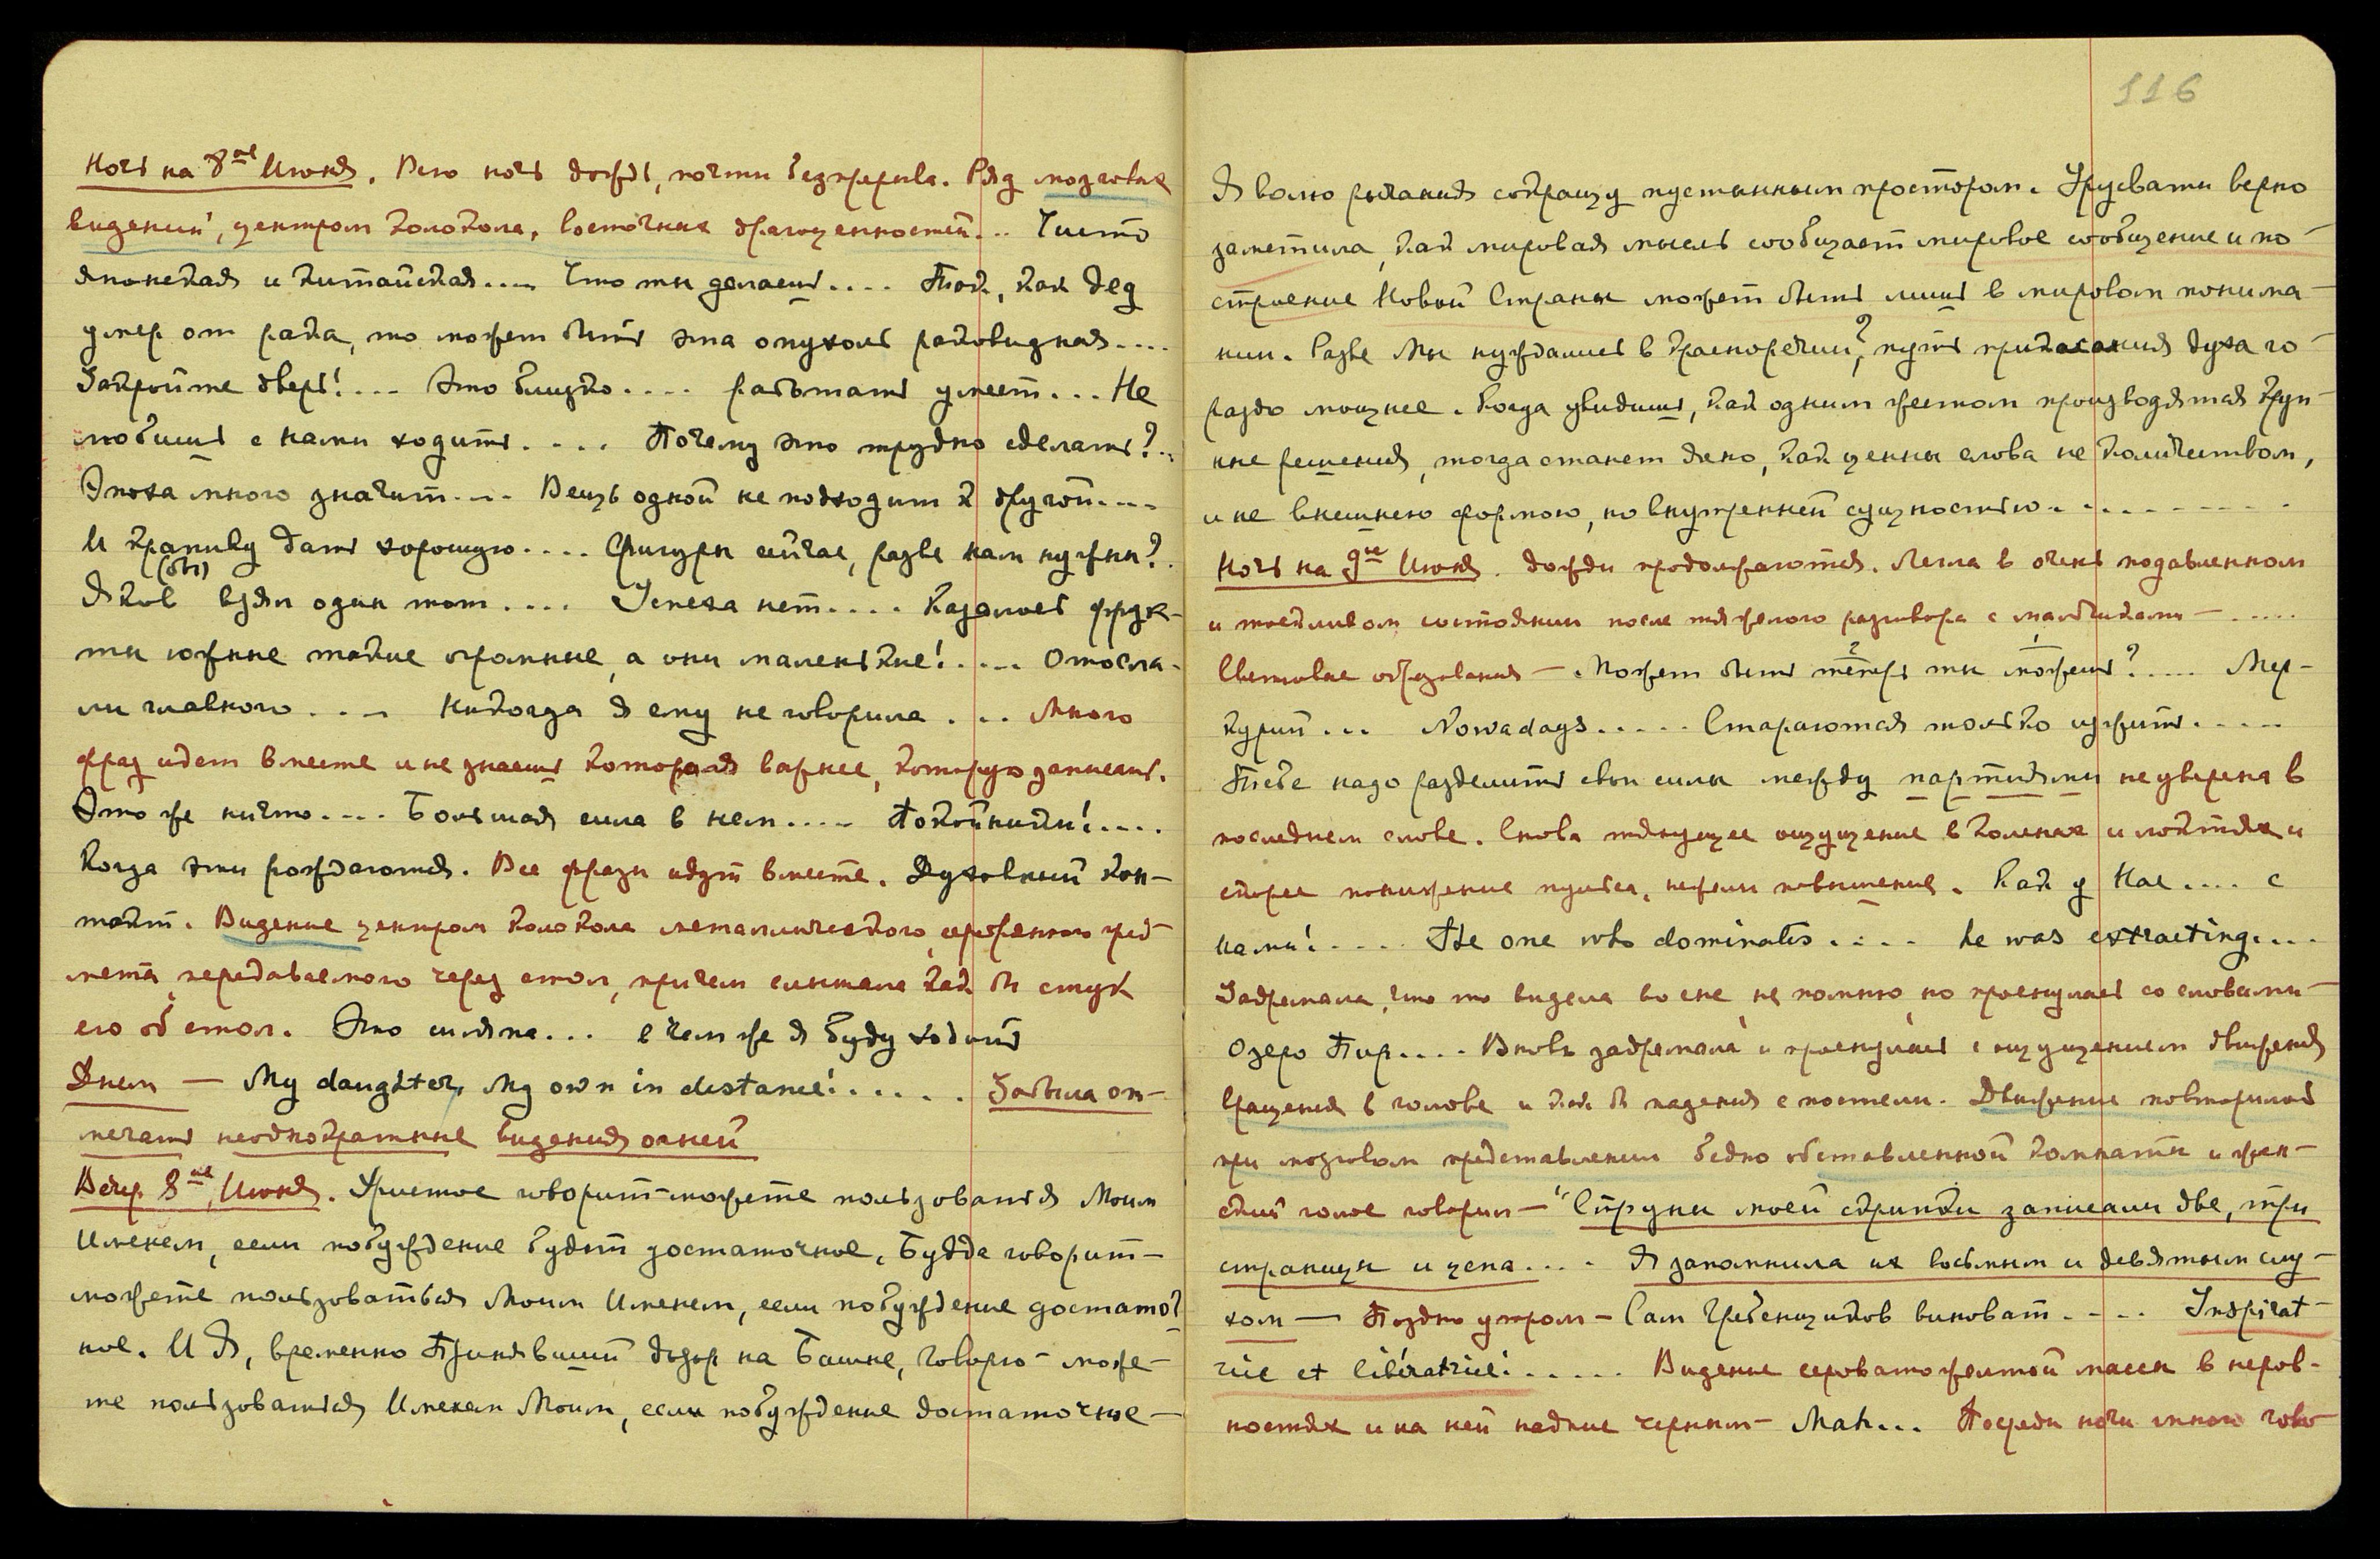 Ночь на 8ое Июня. Всю ночь дождь, почти безпрерыва. Ряд мозговых
видений, центром колокола, восточных драгоценностей... Чисто
японская и китайская.... Что ты делаешь.... Так, как дед
умер от рака, то может быть эта опухоль раковидная....
Закройте дверь!... Это близко.... работать умеет... Не
любишь с нами ходить.... Почему это трудно сделать?..
Эпоха много значит.... Вещь одной не подходит к другой....
И крапиву дать хорошую.... Фигуры сейчас, разве нам нужны?.
(бы)
Яков взял один том.... Успеха нет.... Казалось фрук-
ты южные такие огромные, а они маленькие!.... Отосла-
ли главного.... Никогда я ему не говорила... Много
фраз идет вместе и не знаешь которая важнее, которую запомнить.
Это же ничто.... Большая сила в нем.... Покойники!....
Когда эти рождаются. Все фразы идут вместе. Духовный кон-
такт. Видение центром колокола металлического, серебряного пред-
мета, передаваемого через стол, причем слышала как бы стук
его об стол. Это шляпа... с чем же я буду ходить
Днем — My daughter, My own in distance!...... Забыла от-
мечать неоднократные видения огней
Вечер 8ое, Июня. Христос говорит — можете пользоваться Моим
Именем, если побуждение будет достаточное, Будда говорит —
можете пользоваться Моим Именем, если побуждение достаточ-
ное. И Я, временно Принявший дозор на Башне, говорю — може-
те пользоваться Именем Моим, если побуждение достаточное —
116
Я волю рыкания сокращу пустынным простором. Урусвати верно
заметила, как мировая мысль сообщает мировое сообщение и по-
строение Новой Страны может быть лишь в мировом понима-
нии. Разве Мы нуждались в красноречии? путь прикасания духа го-
раздо мощнее. Когда увидишь, как одним жестом производятся круп-
ные решения, тогда станет ясно, как ценны слова не количеством,
и не внешнею формою, но внутренней сущностью..........
Ночь на 9ое Июня. Дожди продолжаются. Легла в очень подавленном
и тоскливом состоянии после тяжелого разговора с мальчиками — .....
Световые образования — Может быть теперь ты можешь?..... Мер-
2 1
курий... Nowadays..... Стараются только ужить.....
Тебе надо разделить свои силы между партиями не уверена в
последнем слове. Снова тянущее ощущение в коленах и локтях и
скорее понижение пульса, нежели повышение. Как у Нас.... с
нами!.... The one who dominates.... he was extracting...
Задремала, что то видела во сне, не помню, но проснулась со словами —
Озеро Пир.... Вновь задремала и проснулась с ощущением движения
вращения в голове и как бы падения с постели. Движение повторилось
при мозговом представлении бедно обставленной комнаты и жен-
ский голос говорил — "Струны моей скрипки записали две, три
страницы и цена.... Я запомнила их восьмым и девятым слу-
хом — Поздно утром — Сам Гребенщиков виноват.... Inspirat-
rice et libératrice!...... Видение серовато желтой массы в неров-
ностях и на ней надпись черным — Mah... Посреди ночи много гово-